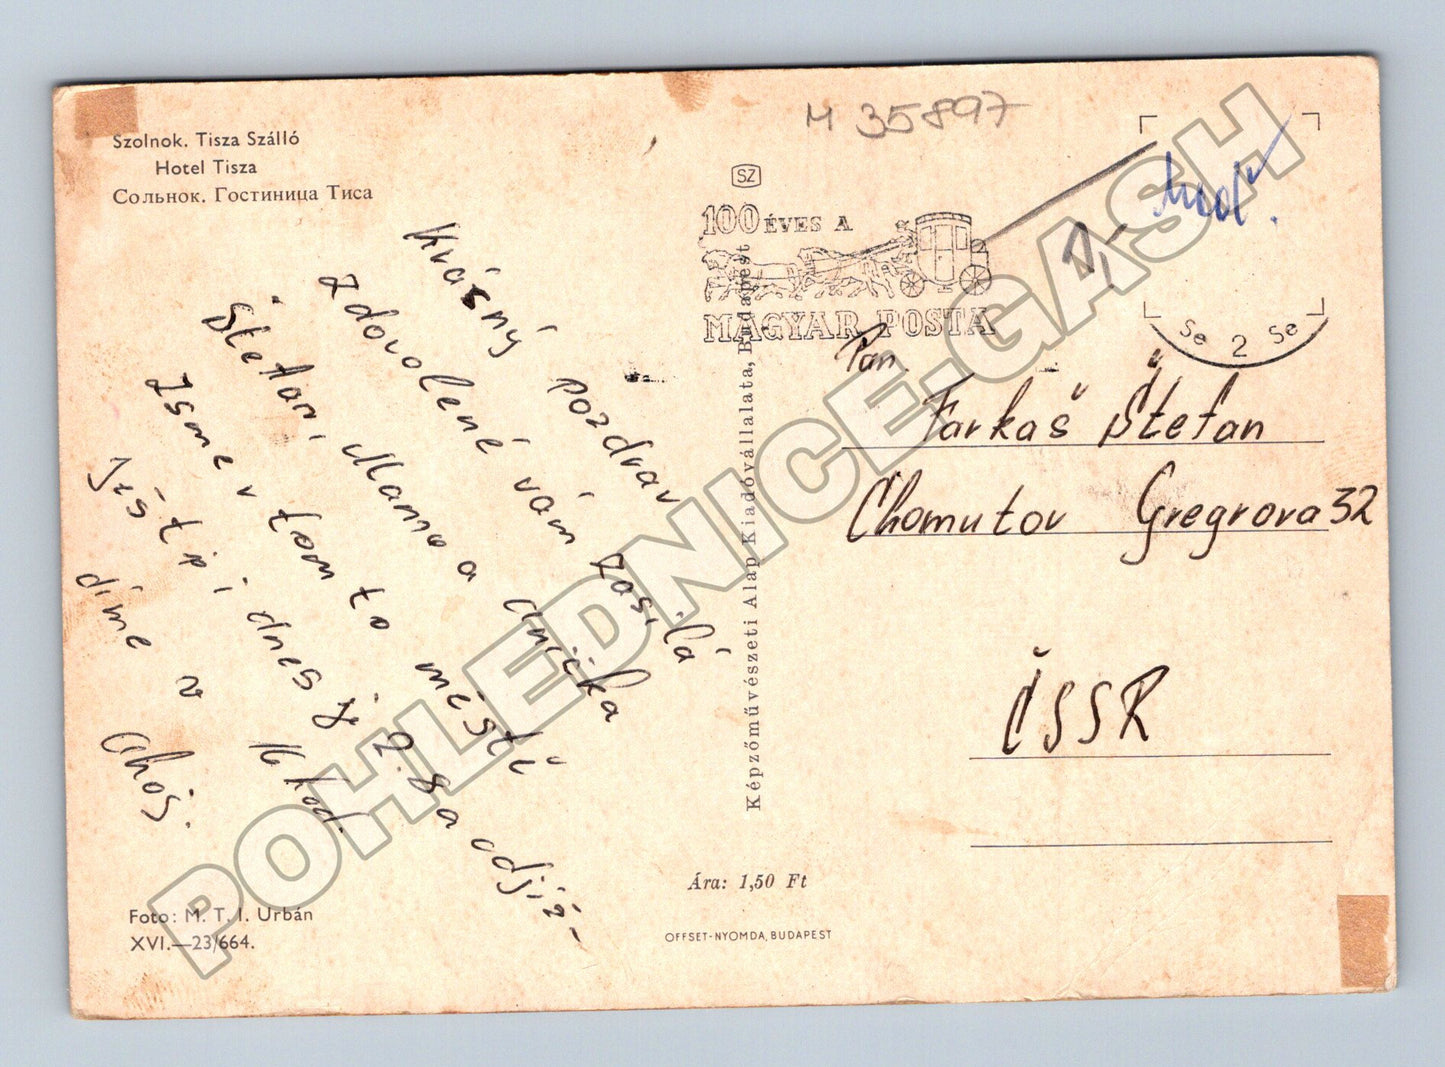 Szolnok. Tisza Szálló
Hotel Tisza
Сольнок. Гостиница Тиса
M 35897
SZ
100 ÉVES A
MAGYAR POSTA
1,-
Se 2 Se
Krásný pozdrav
z dovolené vám zasílá
Štefan, Mama a Anička
Jsme v tom to městě
Ješt p i dnes j 2. 8 a odjíž-
díme v 16 hod.
Ahoj.
Pan
Farkaš Štefan
Chomutov Gregrova 32
ČSSR
Képzőművészeti Alap Kiadóvállalata, Budapest
Ára: 1,50 Ft
Foto: M. T. I. Urbán
XVI.—23/664.
OFFSET-NYOMDA, BUDAPEST
POHLEDNICE.GASH